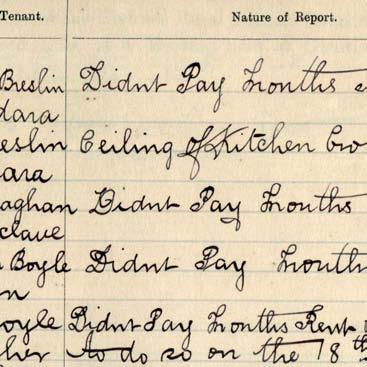 Tenant. Nature of Report.
Breslin Didnt Pay Months
dara
eslin Ceiling of Kitchen
ara
aghan Didnt Pay Months
clave
Boyle Didnt Pay Months
n
oyle Didnt Pay Months Rent
her to do so on the 18th